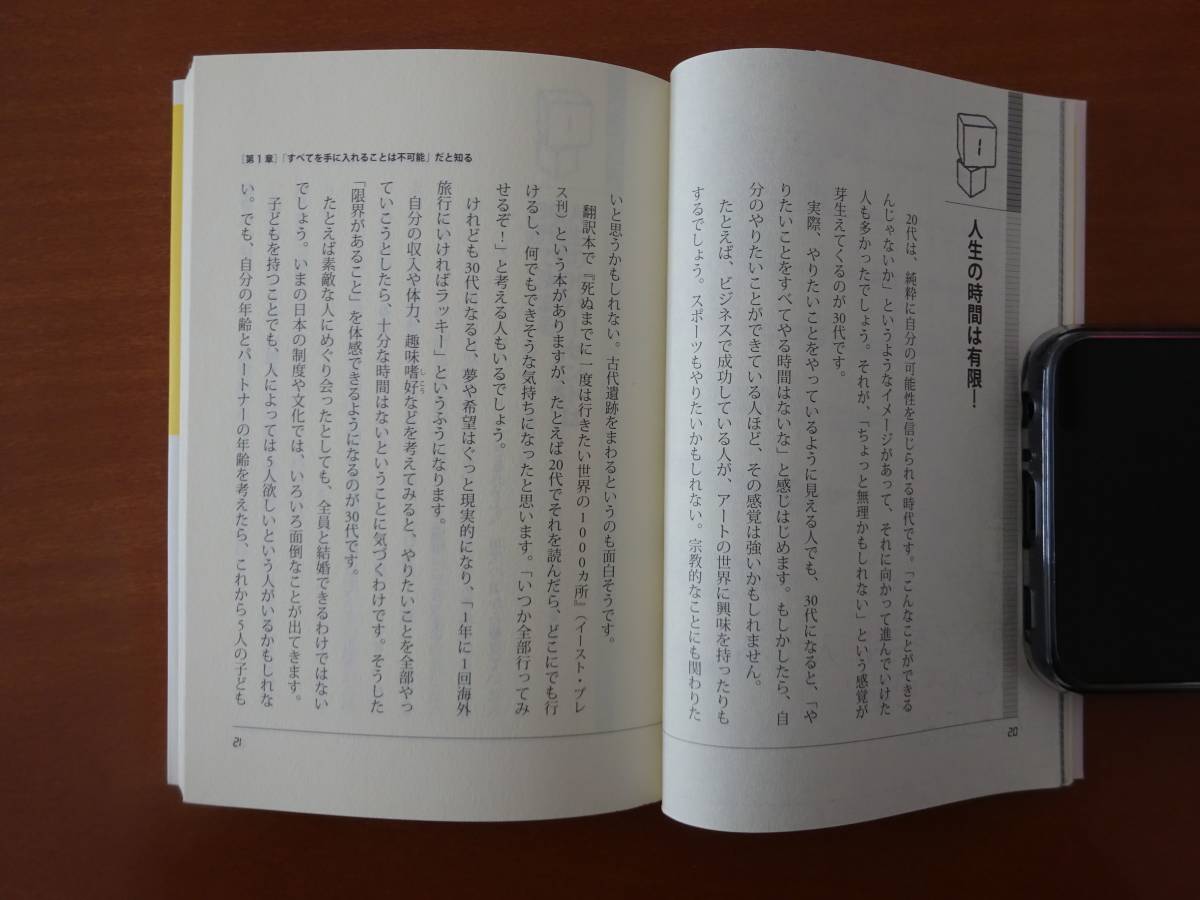 1
人生の時間は有限！
20代は、純粋に自分の可能性を信じられる時代です。「こんなことができる
んじゃないか」というようなイメージがあって、それに向かって進んでいけた
人も多かったでしょう。それが、「ちょっと無理かもしれない」という感覚が
芽生えてくるのが30代です。
実際、やりたいことをやっているように見える人でも、30代になると、「や
りたいことをすべてやる時間はないな」と感じはじめます。もしかしたら、自
分のやりたいことができている人ほど、その感覚は強いかもしれません。
たとえば、ビジネスで成功している人が、アートの世界に興味を持ったりも
するでしょう。スポーツもやりたいかもしれない。宗教的なことにも関わりた
20
いと思うかもしれない。古代遺跡をまわるというのも面白そうです。
翻訳本で『死ぬまでに一度は行きたい世界の1000ヵ所』（イースト・プレ
ス刊）という本がありますが、たとえば20代でそれを読んだら、どこにでも行
けるし、何でもできそうな気持ちになったと思います。「いつか全部行ってみ
せるぞ！」と考える人もいるでしょう。
けれども30代になると、夢や希望はぐっと現実的になり、「1年に1回海外
旅行にいければラッキー」というふうになります。
自分の収入や体力、趣味嗜好などを考えてみると、やりたいことを全部やっ
しこう
ていこうとしたら、十分な時間はないということに気づくわけです。そうした
「限界があること」を体感できるようになるのが30代です。
たとえば素敵な人にめぐり会ったとしても、全員と結婚できるわけではない
でしょう。いまの日本の制度や文化では、いろいろ面倒なことが出てきます。
子どもを持つことでも、人によっては5人欲しいという人がいるかもしれな
い。でも、自分の年齢とパートナーの年齢を考えたら、これから5人の子ども
［第1章］「すべてを手に入れることは不可能」だと知る
21